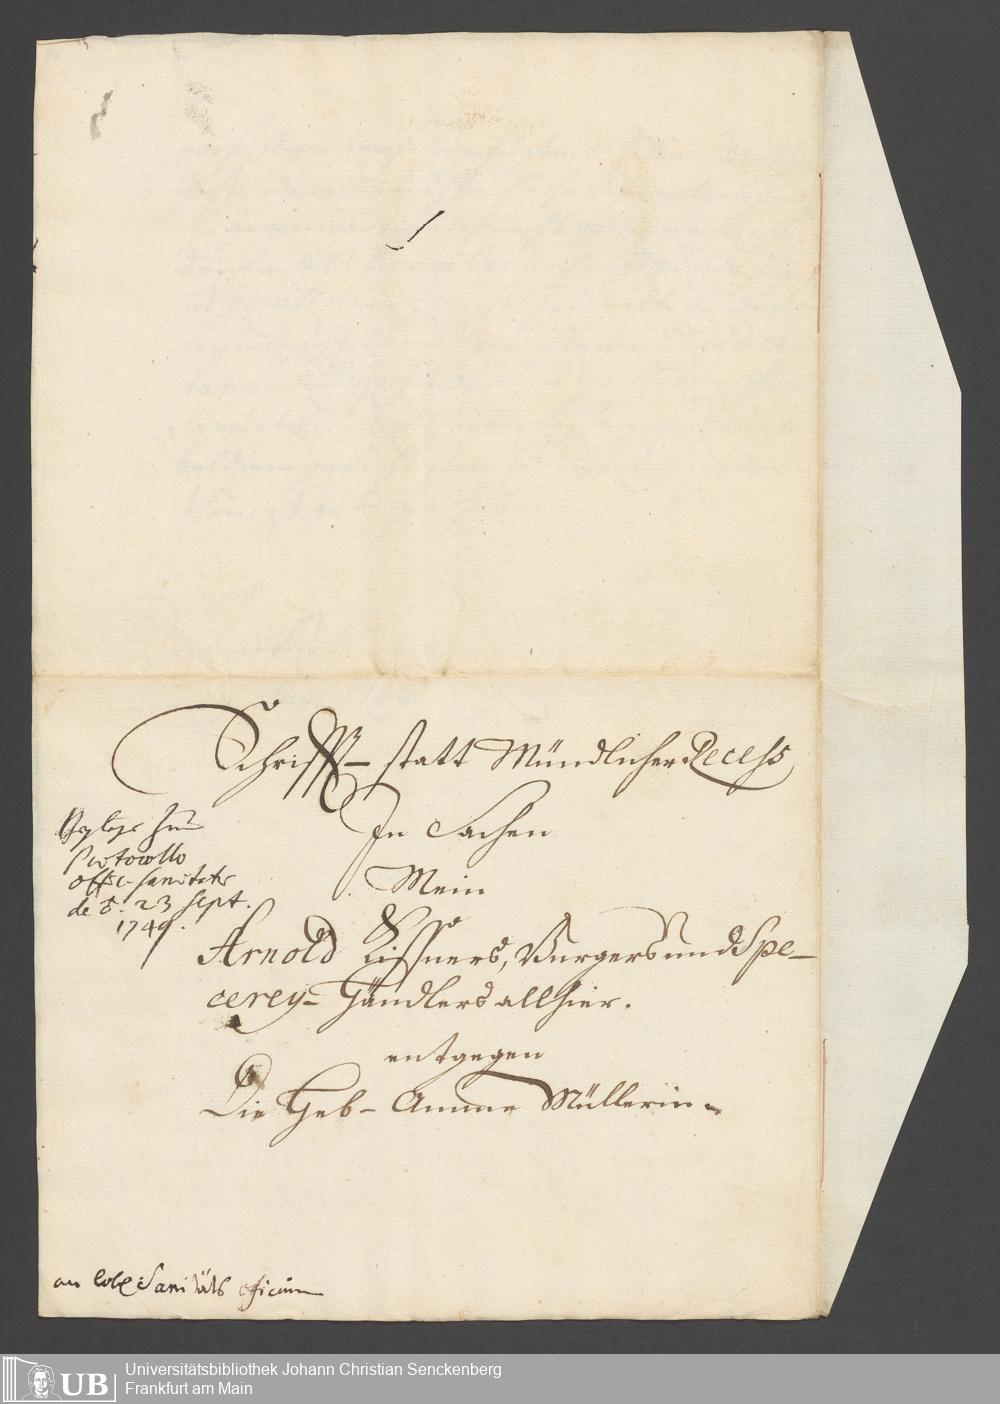 Schrifft- statt Mündlicher Recess
In Sachen
Mein
Arnold Kissners, Burgers und Spe-
cerey- Händlers allhier.
entgegen
Die Heb- Amme Müllerin
Protocollo
offic. Sanitatis
de d. 23 Sept.
1749.
an lobl Sanitäts oficium
UB
Universitätsbibliothek Johann Christian Senckenberg
Frankfurt am Main